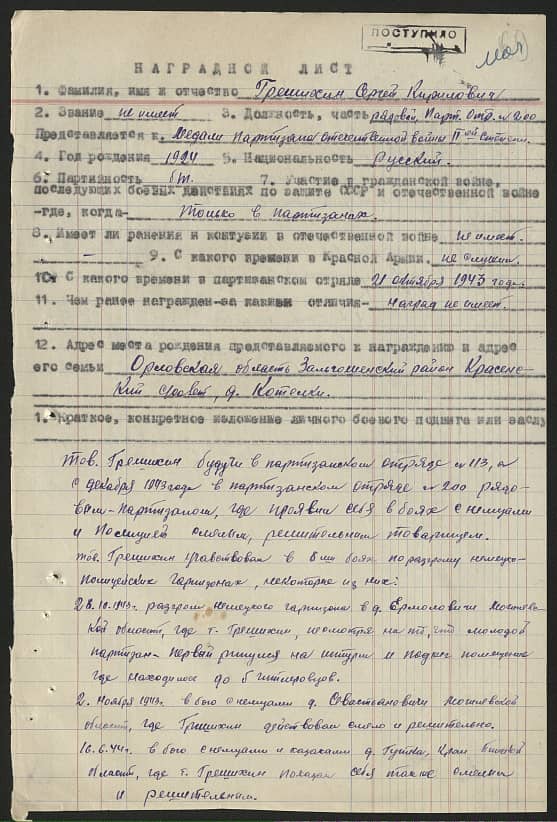 ПОСТУПИЛО
НАГРАДНОЙ ЛИСТ
1. Фамилия, имя и отчество Грешихин Сергей Кирилович
2. Звание не имеет 3. Должность, часть рядовой, Парт. Отр. № 200
Представляется к Медали Партизана отечественной войны IIой степени.
4. Год рождения 1924 5. Национальность Русский.
6. Партийность бп. 7. Участие в гражданской войне,
последующих боевых действиях по защите СССР и отечественной войне
-где, когда- только в партизанах.
8. Имеет ли ранения и контузии в отечественной войне не имеет.
- 9. С какого времени в Красной Армии. не служил.
10. С какого времени в партизанском отряде 21 октября 1943 года
11. Чем ранее награжден-за какие отличия- наград не имеет.
12. Адрес места рождения представляемого к награждению и адрес
его семьи Орловская область район
совет, д. Котелки.
1. Краткое, конкретное изложение личного боевого подвига или заслу
тов. Грешихин будучи в партизанском отряде № 113, а
с декабря 1943 года в партизанском отряде № 200 рядо-
вым-партизаном, где проявил себя в боях с немцами
и полицией смелым, решительным товарищем.
тов. Грешихин участвовал в 8ми боях по разгрому немецко-
полицейских гарнизонах, некоторые из них:
28.10.1943г. разгром немецкого гарнизона в д. Ермоловичи Могилев-
кой области, где т. Грешихин, несмотря на то, что молодой
партизан - первый ринулся на штурм и поджег помещение
где находилось до 6 гитлеровцов.
2. Ноября 1943г. в бою с немцами д. Севастьяновичи Могилевской
области, где Грешихин действовал смело и решительно.
16.6.44г. в бою с немцами и казаками д.
области, где т. Грешихин показал себя также смелым
и решительным.